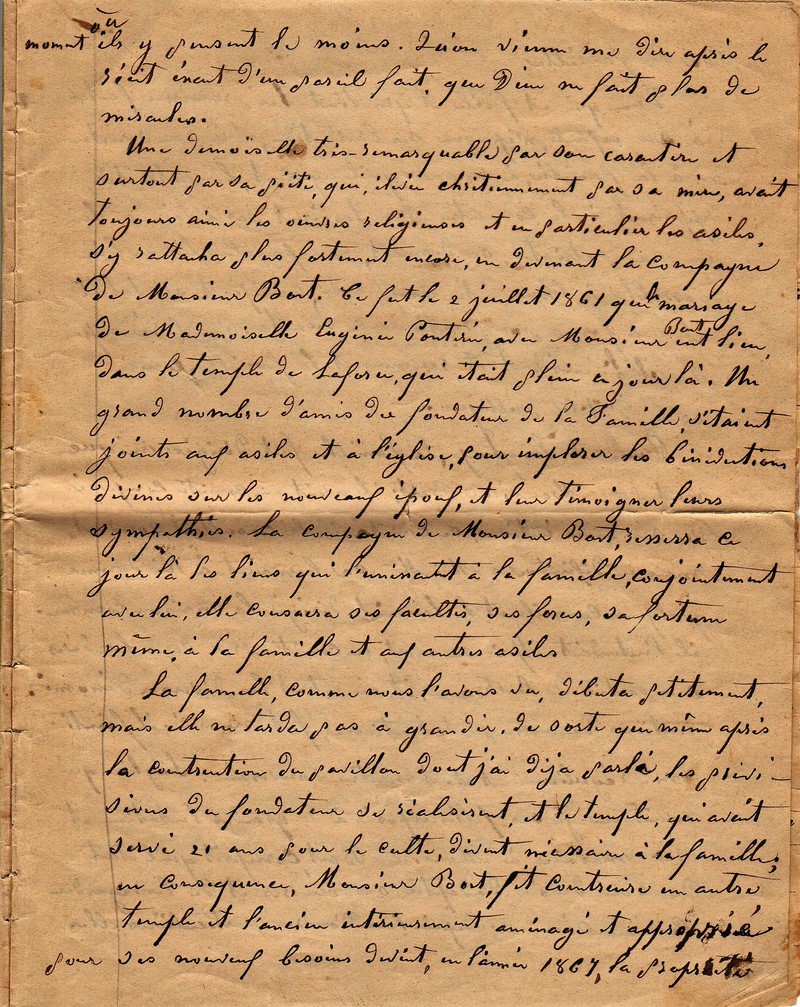 où
moment ils y pensent le moins. Qu'on vienne me dire après le
récit exact d'un pareil fait, que Dieu ne fait plus de
miracles.
Une demoiselle très-remarquable par son caractère et
surtout par sa piété, qui, élevée chrétiennement par sa mère, avait
toujours aimé les oeuvres religieuses et en particulier les asiles,
s'y rattacha plus fortement encore, en devenant la compagne
de Monsieur Bost. Ce fut le 2 juillet 1861 que le mariage
de Mademoiselle Eugénie Ponterie, avec Monsieur Bost eut lieu,
dans le temple de Laforce, qui était plein ce jour là. Un
grand nombre d'amis du fondateur de la Famille, s'étaient
joints aux asiles et à l'église, pour implorer les bénédictions
divines sur les nouveaux époux, et leur témoigner leurs
sympathies. La compagne de Monsieur Bost, resserra ce
jour là les liens qui l'unissait à la famille, conjointement
avec lui, elle consacra ses facultés, ses forces, sa fortune
même, à la famille et aux autres asiles
La famille, comme nous l'avons vu, débuta petitement,
mais elle ne tarda pas à grandir. de sorte que même après
la contruction du pavillon dont j'ai déja parlé, les prévi-
sions du fondateur se réalisèrent, et le temple, qui avait
servi 21 ans pour le culte, devint nécessaire à la famille;
en consequence, Monsieur Bost, fit contruire un autre
temple et l'ancien intérieurement aménagé et approprié
pour ses nouveaux besoins devint, en l'année 1867, la propriété